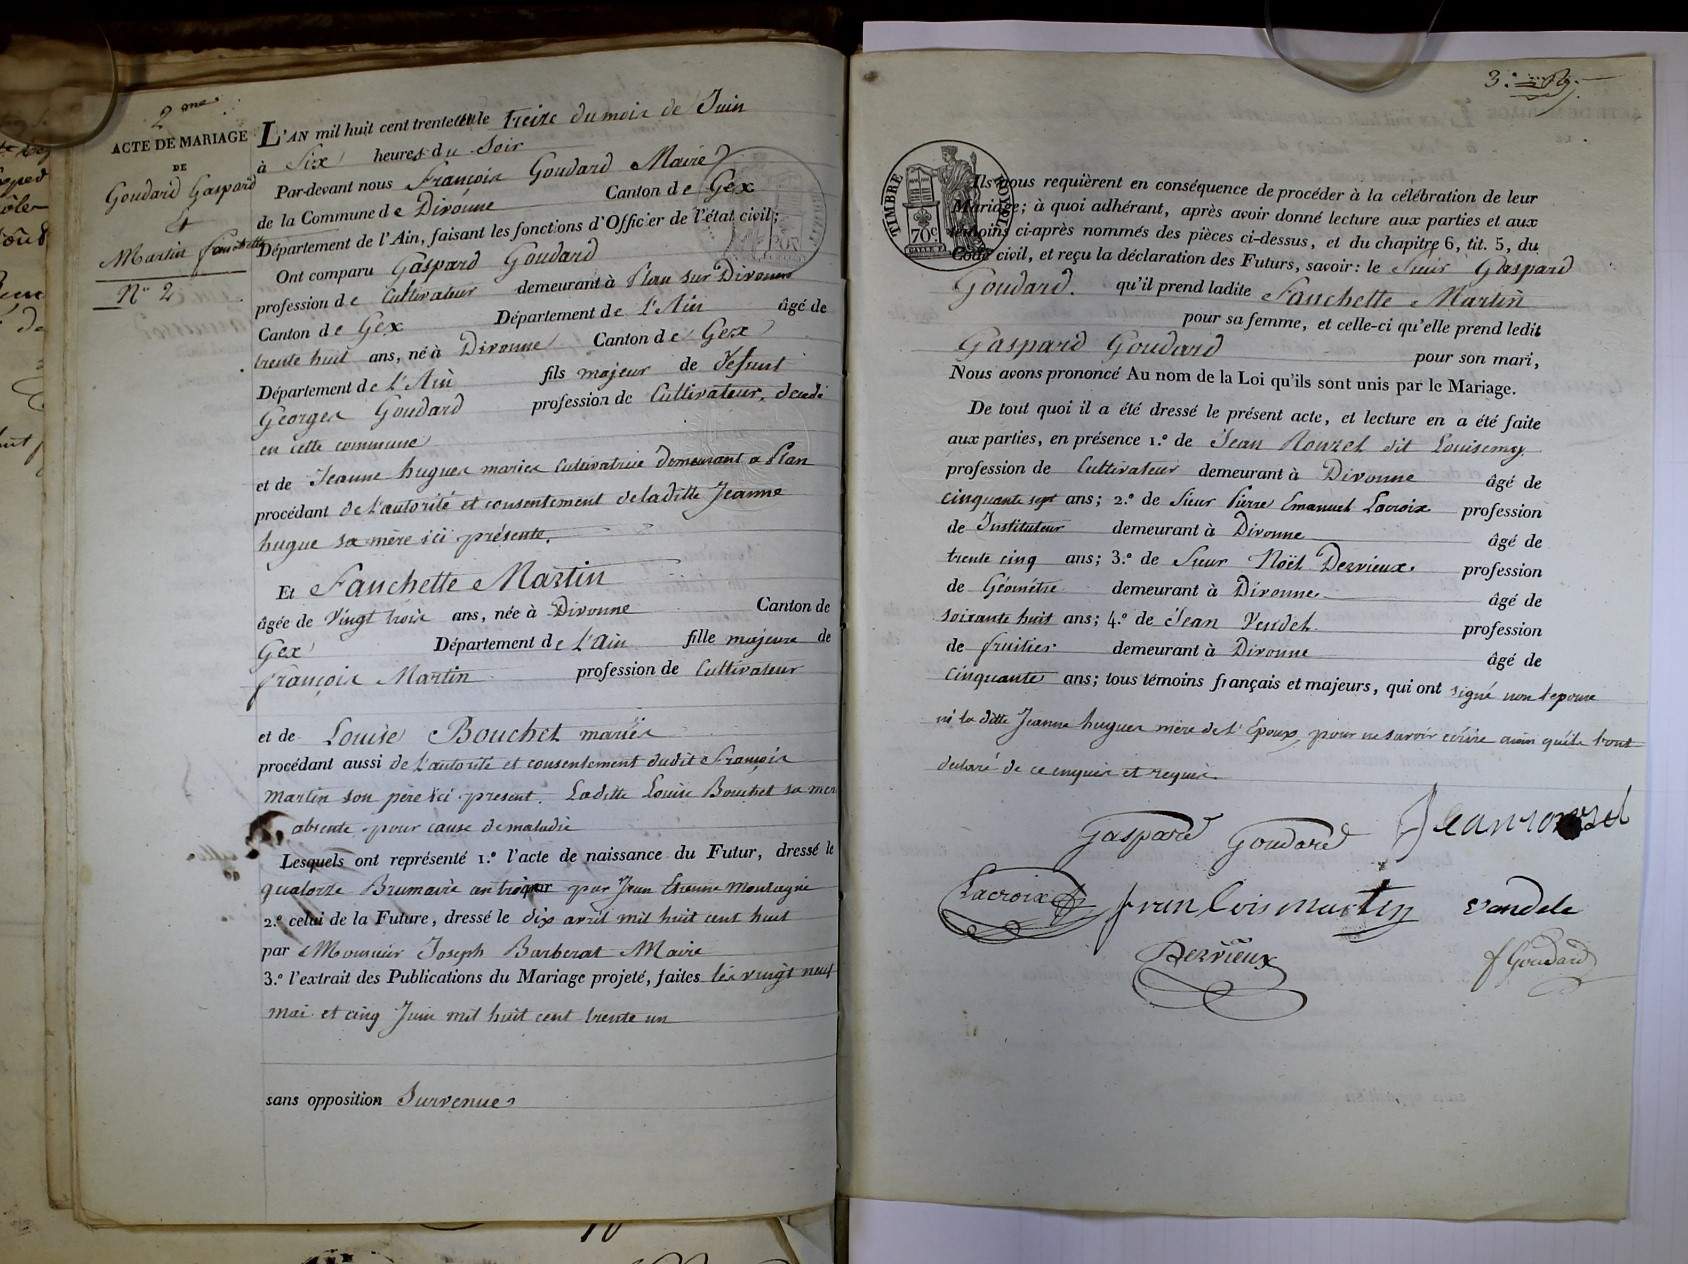 2me
ACTE DE MARIAGE
DE
Goudard Gaspard
&
Martin Fanchette
No 2
L'AN mil huit cent trente et un le Treize du mois de Juin
à Six heures du Soir
Par-devant nous François Goudard Maire
de la Commune de Divonne Canton de Gex
Département de l'Ain, faisant les fonctions d'Officier de l'état civil;
Ont comparu Gaspard Goudard
profession de Cultivateur demeurant à Plan sur Divonne
Canton de Gex Département de l'Ain âgé de
trente huit ans, né à Divonne Canton de Gex
Département de l'Ain fils majeur de défunt
Georges Goudard profession de Cultivateur, décédé
en cette commune
et de Jeanne hugues mariés Cultivatrice demeurant a Plan
procédant de l'autorité et consentement de laditte Jeanne
hugue sa mère ici présente.
Et Fanchette Martin
âgée de Vingt trois ans, née à Divonne Canton de
Gex Département de l'Ain fille majeure de
François Martin profession de Cultivateur
et de Louise Bouchet mariés
procédant aussi de l'autorité et consentement dudit François
Martin son père ici présent. Laditte Louise Bouchet sa mère
absente pour cause de maladie
Lesquels ont représenté 1.o l'acte de naissance du Futur, dressé le
quatorze Brumaire an par Jean Etienne Montagnie
2.o celui de la Future, dressé le dix avril mil huit cent huit
par Monsieur Joseph Barberat Maire
3.o l'extrait des Publications du Mariage projeté, faites les vingt neuf
mai et cinq Juin mil huit cent trente un
sans opposition Survenue
3.e
TIMBRE ROYAL
70c.
Ils nous requièrent en conséquence de procéder à la célébration de leur
Mariage; à quoi adhérant, après avoir donné lecture aux parties et aux
témoins ci-après nommés des pièces ci-dessus, et du chapitre 6, tit. 5, du
Code civil, et reçu la déclaration des Futurs, savoir: le Sieur Gaspard
Goudard. qu'il prend ladite Fanchette Martin
pour sa femme, et celle-ci qu'elle prend ledit
Gaspard Goudard pour son mari,
Nous avons prononcé Au nom de la Loi qu'ils sont unis par le Mariage.
De tout quoi il a été dressé le présent acte, et lecture en a été faite
aux parties, en présence 1.o de Jean Rouzet dit Louisemy
profession de Cultivateur demeurant à Divonne âgé de
cinquante sept ans; 2.o de Sieur Pierre Emanuel Lacroix profession
de Instituteur demeurant à Divonne âgé de
trente cinq ans; 3.o de Sieur Noël Dezvieux profession
de Géomètre demeurant à Divonne âgé de
soixante huit ans; 4.o de Jean Vendel profession
de fruitier demeurant à Divonne âgé de
cinquante ans; tous témoins français et majeurs, qui ont signé non l'epouse
ni la ditte Jeanne hugues mère de l'Epoux, pour ne savoir écrire ainsi quils l'ont
declaré de ce enquis et requis.
Gaspard Goudard Jean rouzet
Lacroix fran Cois martin Vandele
Dezvieux f Goudard